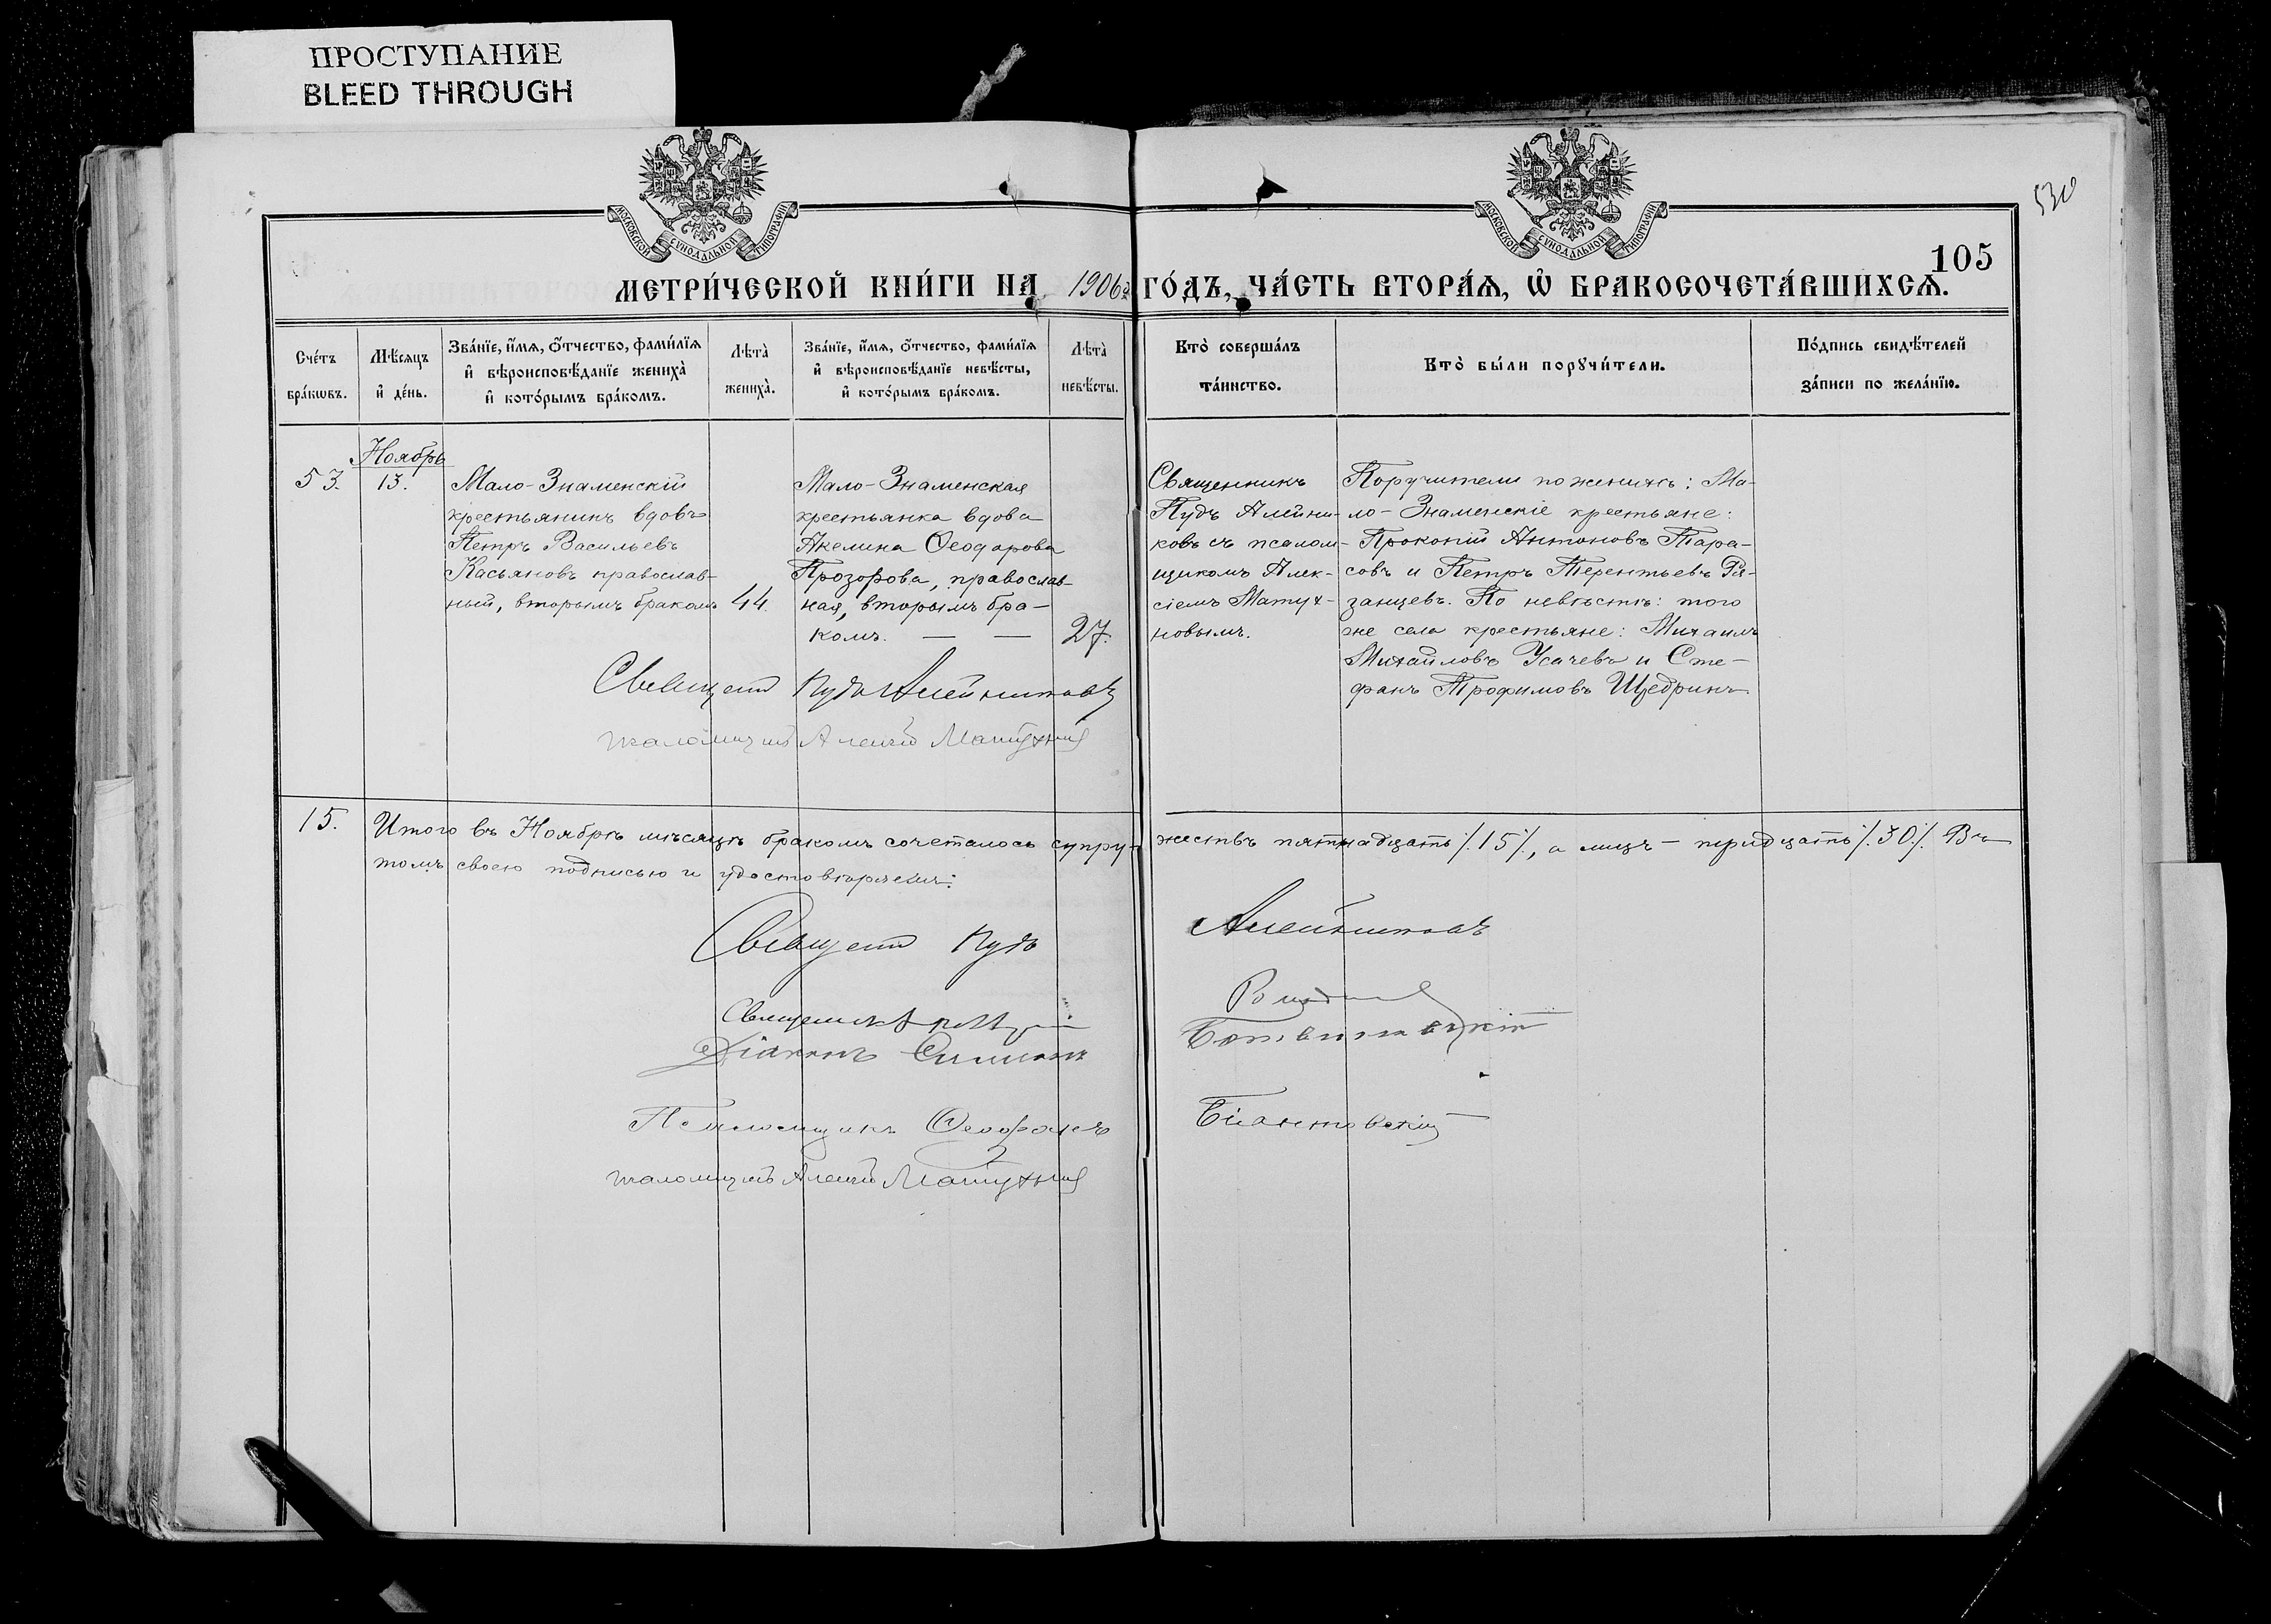 ПРОСТУПАНИЕ
BLEED THROUGH
МОСКОВСКОЙ СУНОДАЛЬНОЙ ТИПОГРАФІИ
МОСКОВСКОЙ СУНОДАЛЬНОЙ ТИПОГРАФІИ
530
105
МЕТРИ́ЧЕСКОЙ КНИ́ГИ НА 1906 го́дъ, ча́сть втора́ѧ, ѡ҆ бракосочета́вшихсѧ.
Сче́тъ
бра́кѡвъ.
Мѣ́сяцъ
и҆ де́нь.
Зва́нїе, и҆́мѧ, ѻ҆́тчество, фами́лїѧ
и҆ вѣроисповѣ́данїе жениха̀
и҆ кото́рымъ бра́комъ.
Лѣта̀
жениха̀.
Зва́нїе, и҆́мѧ, ѻ҆́тчество, фами́лїѧ
и҆ вѣроисповѣ́данїе невѣ́сты,
и҆ кото́рымъ бра́комъ.
Лѣта̀
невѣ́сты.
Кто̀ соверша́лъ
та́инство.
Кто̀ бы́ли порꙋчи́тели.
По́дпись свидѣ́телей
за́писи по жела́нїю.
Ноябрь
53.
13.
Мало-Знаменскій
крестьянинъ вдовъ
Петръ Васильевъ
Касьяновъ православ-
ный, вторымъ бракомъ
44.
Мало-Знаменская
крестьянка вдова
Акелина Ѳеодорова
Прозорова, православ-
ная, вторымъ бра-
комъ. — —
27.
Священникъ
Пудъ Алейни-
ковъ съ псалом-
щикомъ Алек-
сіемъ Матух-
новымъ.
Поручители по женихѣ: Ма-
ло-Знаменскіе крестьяне:
Прокопій Антоновъ Тара-
совъ и Петръ Терентьевъ Ря-
занцевъ. По невѣстѣ: того
же села крестьяне: Михаилъ
Михайловъ Усачевъ и Сте-
фанъ Трофимовъ Щедринъ
Священ Пудъ Алейниковъ
Алексій Матухн
15.
Итого въ Ноябрѣ мѣсяцѣ бракомъ сочеталось супру-жествъ пятнадцать /.15./, а лицъ — тридцать /.30./. Въ
томъ своею подписью и удостовѣряемъ:
Священ Пудъ Алейниковъ
Священникъ
Діаконъ Симеонъ
Псаломщикъ Ѳеофанъ
Алексій Матухн